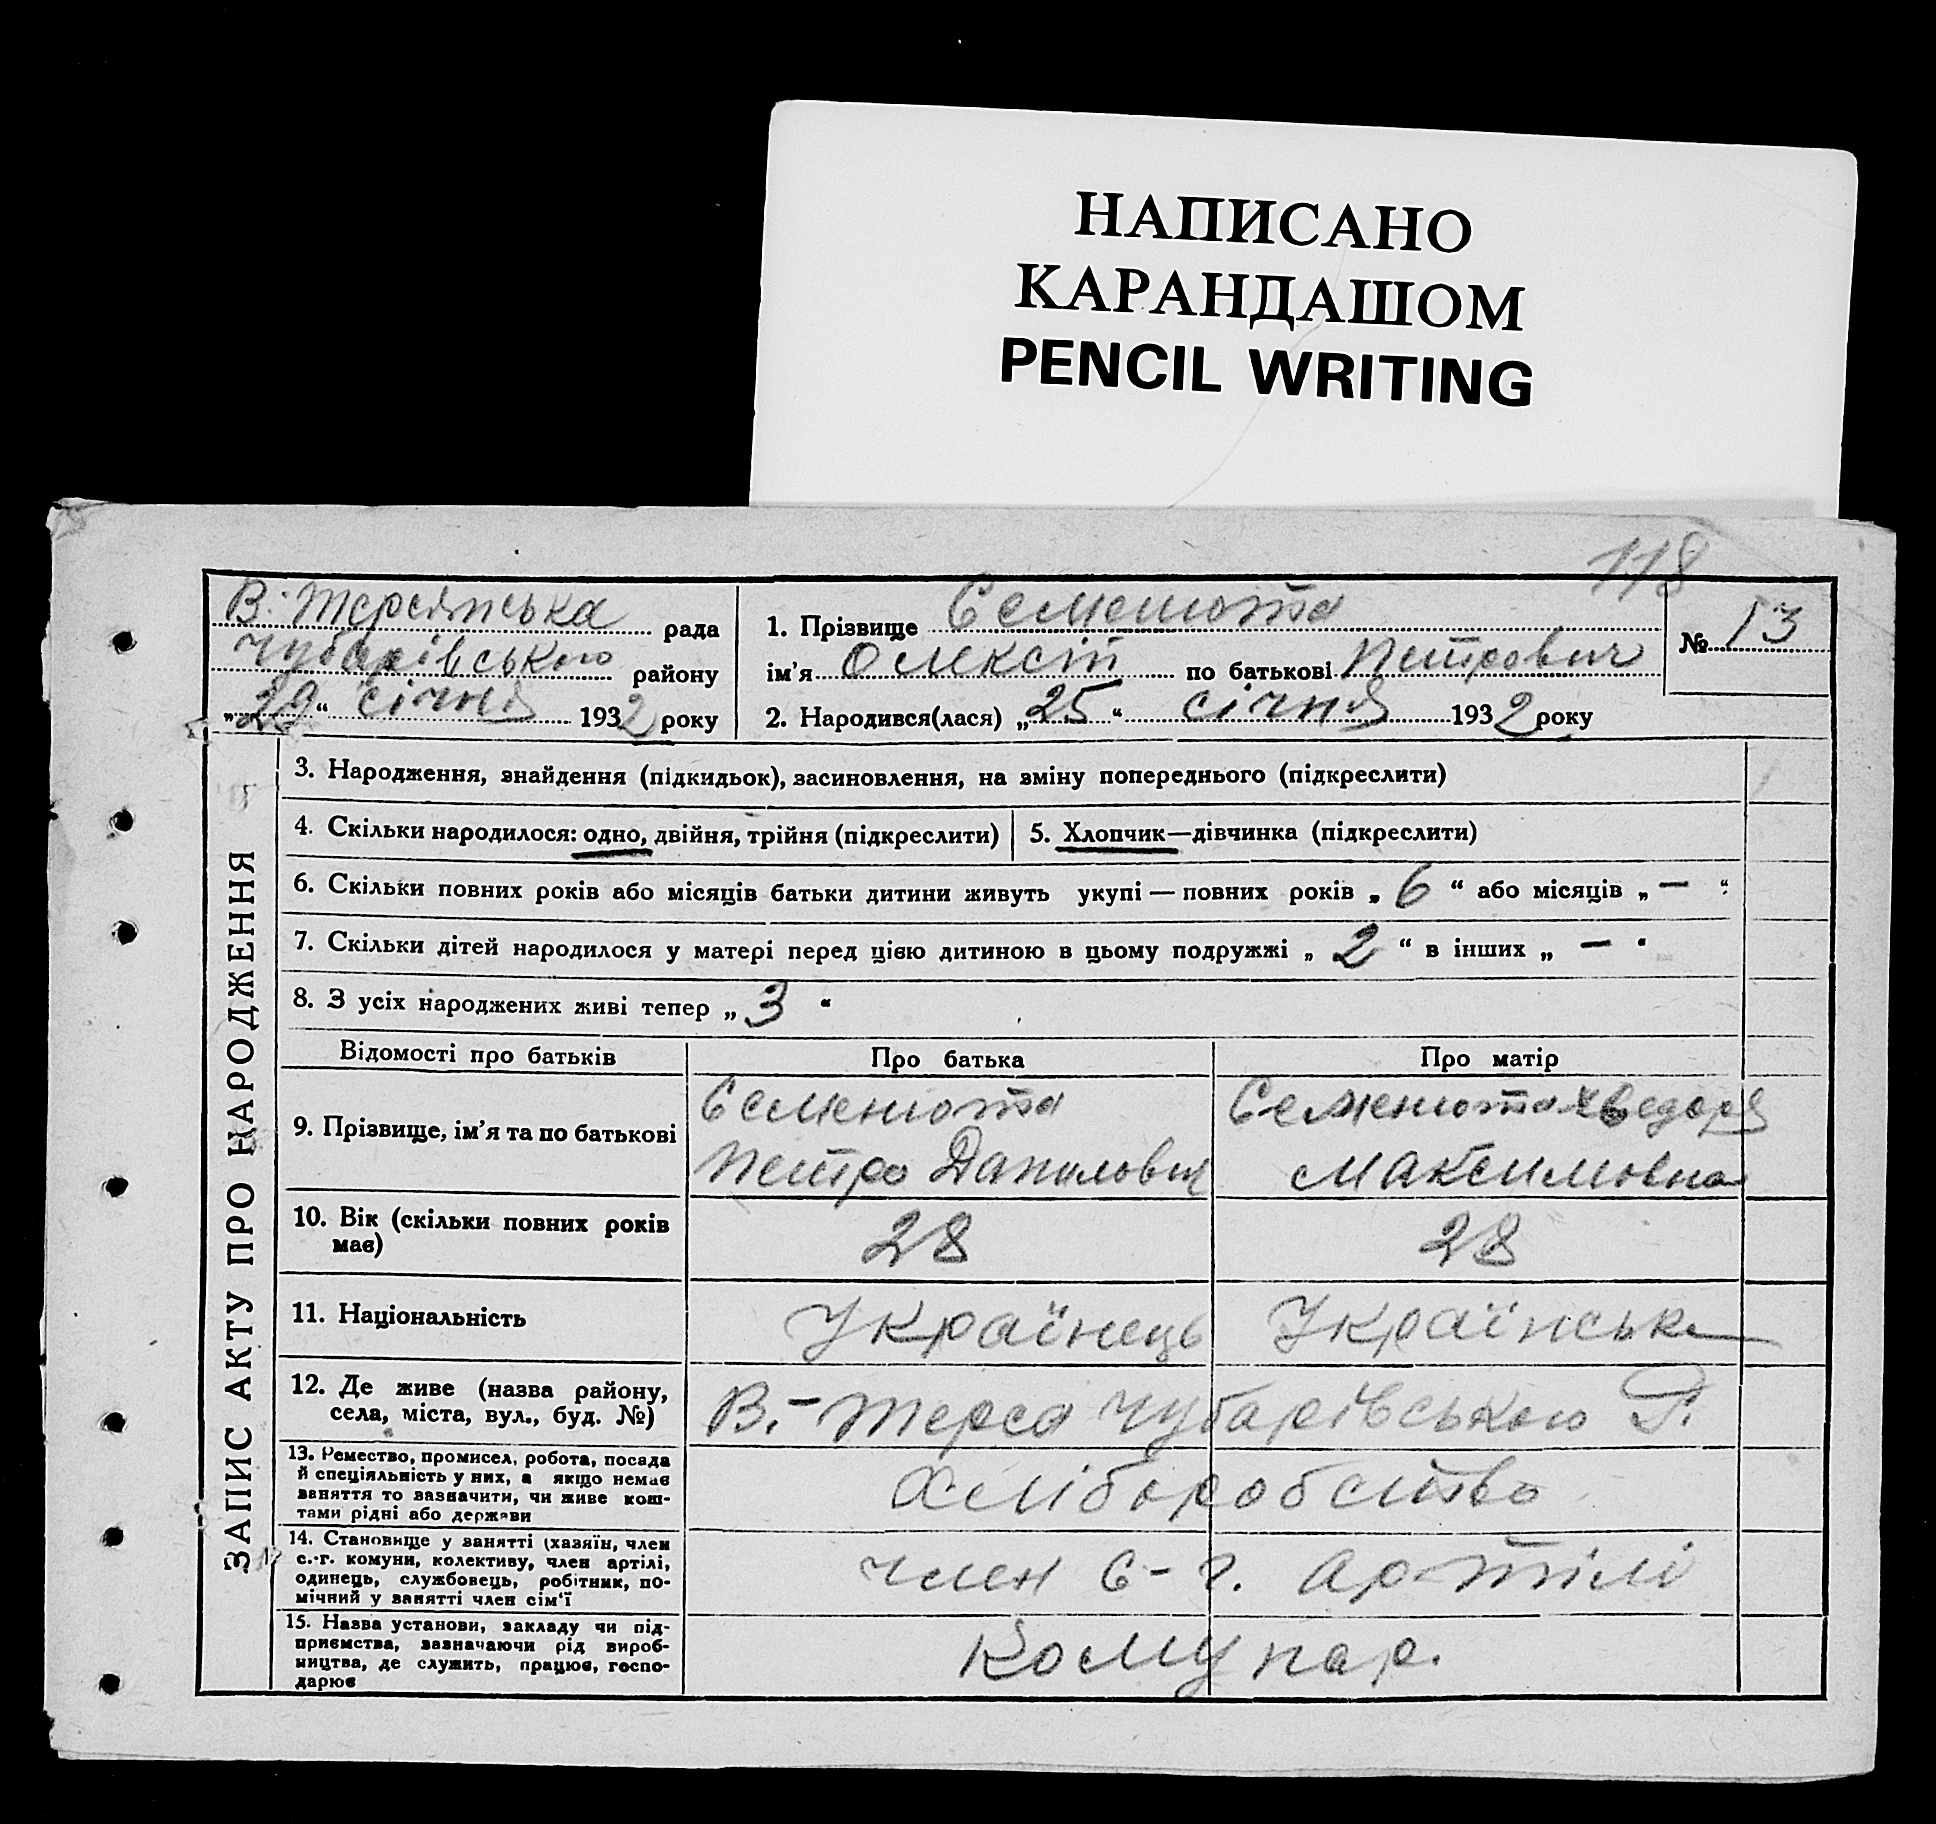 НАПИСАНО
КАРАНДАШОМ
PENCIL WRITING
118
В.-Терсянська рада
Чубарівського району
„29“ січня 1932 року
1. Прізвище Семенюта
ім'я Олексій по батькові Петрович
2. Народився(лася) „25“ січня 1932 року
№ 13
ЗАПИС АКТУ ПРО НАРОДЖЕННЯ
3. Народження, знайдення (підкидьок), засиновлення, на зміну попереднього (підкреслити)
4. Скільки народилося: одно, двійня, трійня (підкреслити) 5. Хлопчик—дівчинка (підкреслити)
6. Скільки повних років або місяців батьки дитини живуть укупі — повних років „ 6 “ або місяців „ — “
7. Скільки дітей народилося у матері перед цією дитиною в цьому подружжі „ 2 “ в інших „ — “
8. З усіх народжених живі тепер „ 3 “
Відомості про батьків Про батька Про матір
9. Прізвище, ім'я та по батькові
Семенюта
Петро Данилович
Семенюта Хведора
Максимовна
10. Вік (скільки повних років
має)
28 28
11. Національність Українець Українська
12. Де живе (назва району,
села, міста, вул., буд. №)
В.-Терса Чубарівського Р.
13. Ремество, промисел, робота, посада
й спеціяльність у них, а якщо немає
заняття то зазначити, чи живе кош-
тами рідні або держави
Хліборобство
14. Становище у занятті (хазяїн, член
с.-г. комуни, колективу, член артілі,
одинець, службовець, робітник, по-
мічний у занятті член сім'ї
член С-г. артілі
15. Назва установи, закладу чи під-
приємства, зазначаючи рід вироб-
ництва, де служить, працює, госпо-
дарює
Кому нар.